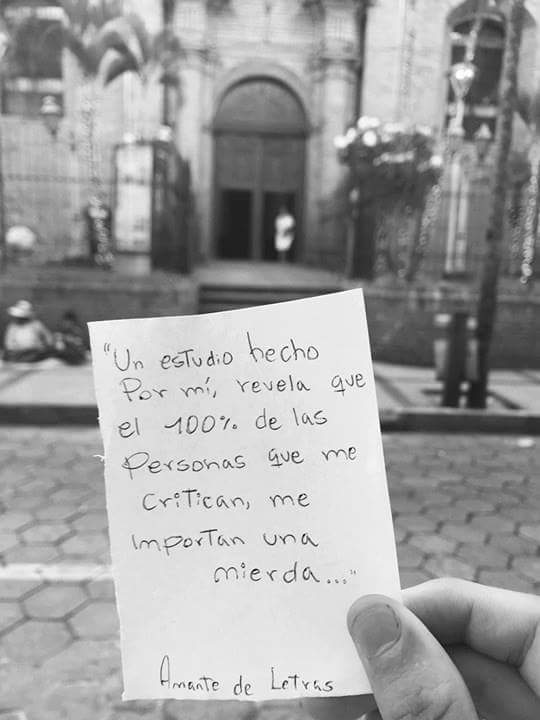 "Un estudio hecho
Por mí, revela que
el 100% de las
Personas que me
critican, me
importan una
mierda..."
Amante de Letras